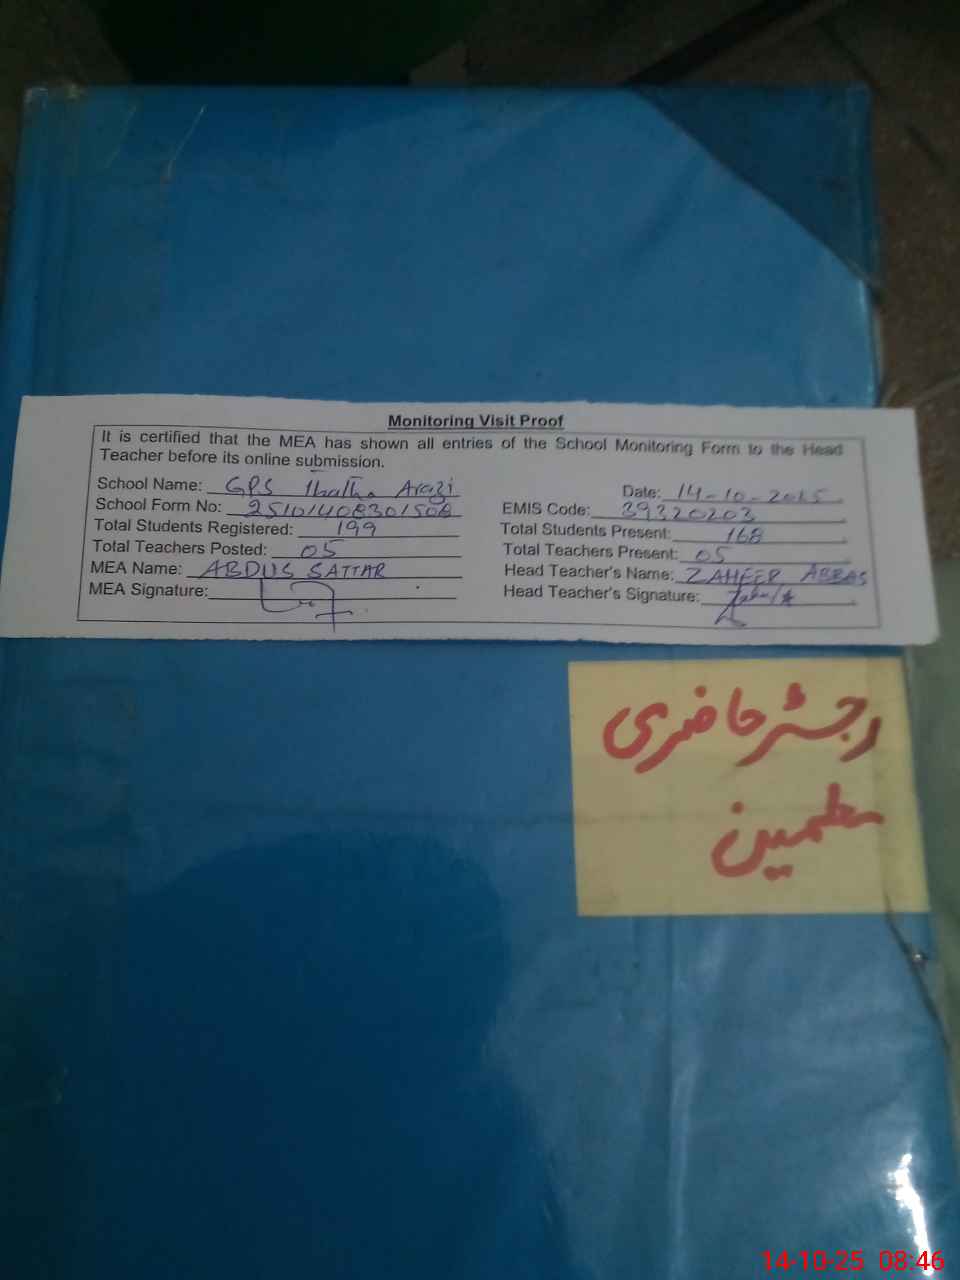 Monitoring Visit Proof
It is certified that the MEA has shown all entries of the School Monitoring Form to the Head
Teacher before its online submission.
School Name: GPS Thatha Arazi
Date: 14-10-2025
School Form No: 25101408301508
EMIS Code: 39320203
Total Students Registered: 199
Total Students Present: 168
Total Teachers Posted: 05
Total Teachers Present: 05
MEA Name: ABDUS SATTAR
Head Teacher's Name: ZAHEER ABBAS
MEA Signature:
Head Teacher's Signature:
رجسٹر حاضری
معلمین
14-10-25 08:46